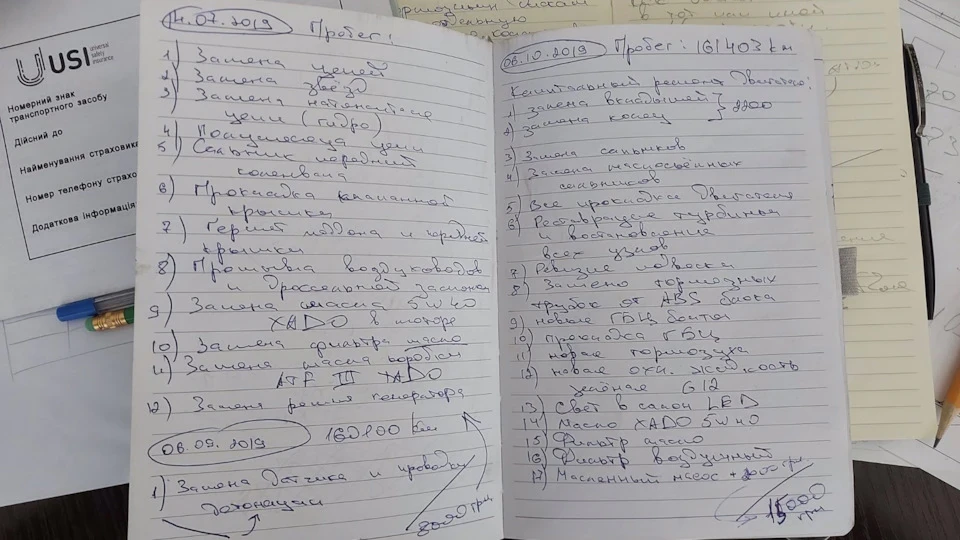 USI universal safety insurance
Номерний знак
транспортного засобу
Дійсний до
Найменування страховика
Номер телефону страхо
Додаткова інформація
14.07.2019 Пробег:
1) Замена цепей
2) Замена звёзд
3) Замена натяжителя
цепи (гидро)
4) Полумесяца цепи
5) Сальник передний
коленвала
6) Прокладка клапанной
крышки
7) Гермет поддона и передней
крышки
8) Промывка воздуховодов
и дроссельной заслонки
9) Замена масла 5w40
XADO в моторе
10) Замена фильтра масло
11) Замена масла коробки
ATF III XADO
12) Замена ремня генератора
06.09.2019 160100 км
1) Замена датчика и проводки
детонации
8000 грн
06.10.2019 Пробег: 161403 км
Капитальный ремонт двигателя:
1) Замена вкладышей
2) Замена колец } 2200
3) Замена сальников
4) Замена маслосъёмных
сальников
5) Все прокладки двигателя
6) Реставрация турбины
востоновление
всех узлов
7) Ревизия подвески
8) Замена тормозных
трубок от ABS блока
9) новые ГБЦ болты
10) Прокладка ГБЦ
11) новая тормозуха
12) новая охл. жидкость
зелёная G12
13) Свет в салон LED
14) Масло XADO 5w40
15) Фильтр масло
16) Фильтр воздушный
17) Масленный насос + 2000 грн
15000
грн